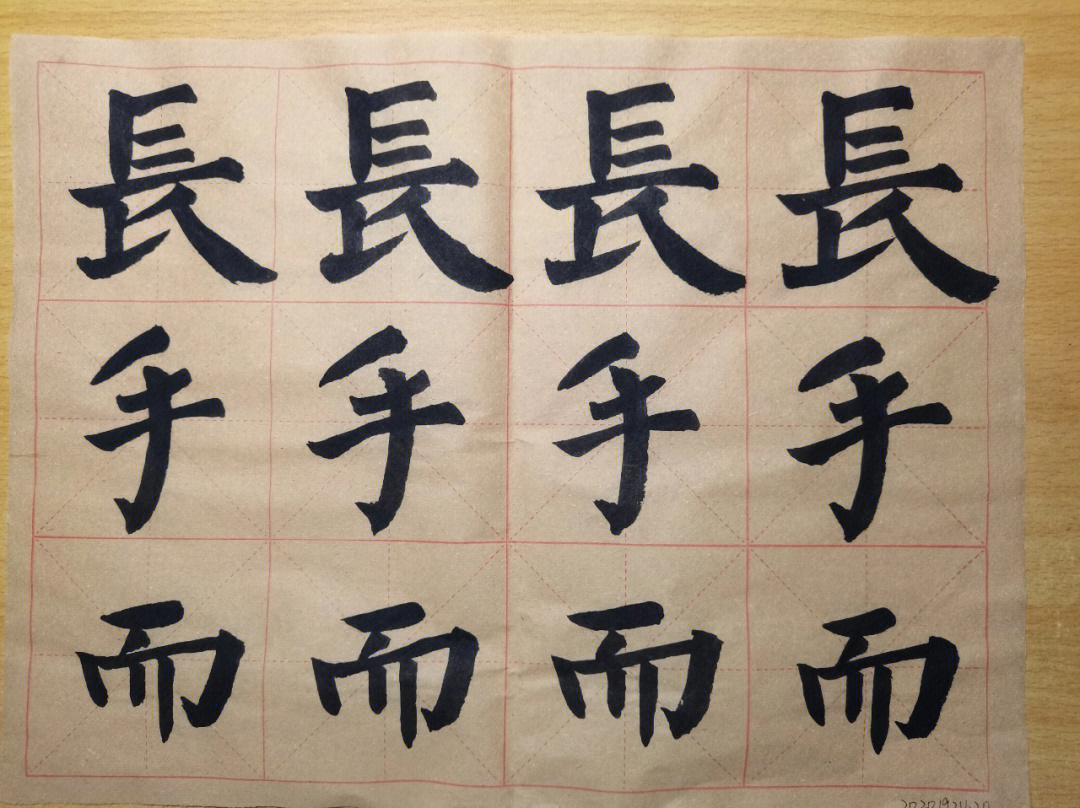 長長長長
手手手手
而而而而